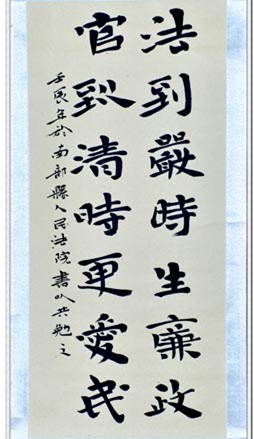 法到嚴時生廉政
官到清時更愛民
壬辰年於南部縣人民法院書以共勉之